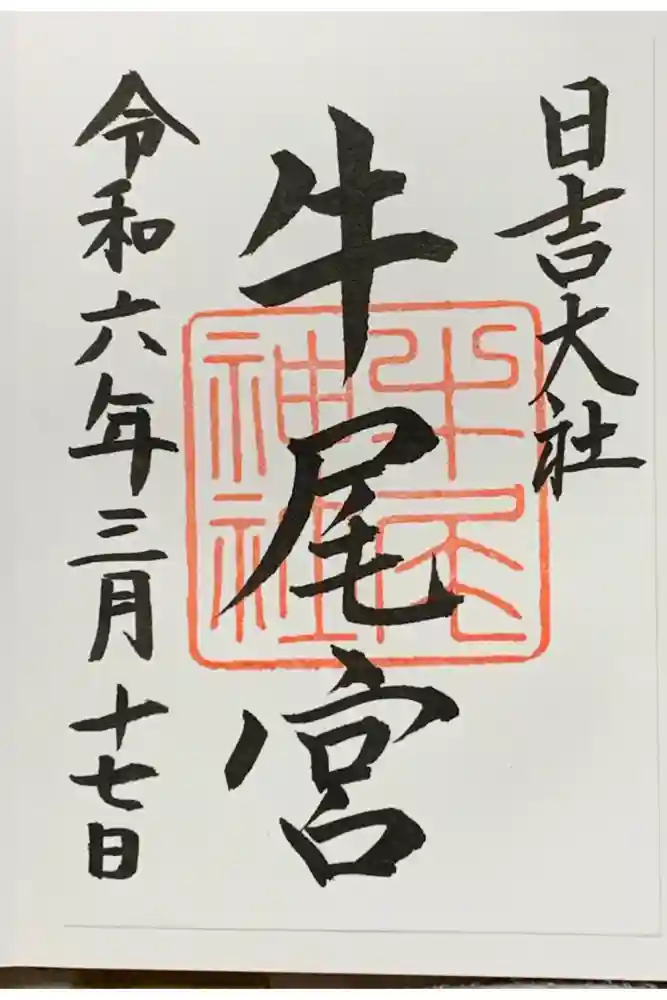 日吉大社
牛尾宮
牛尾
神社
令和六年三月十七日